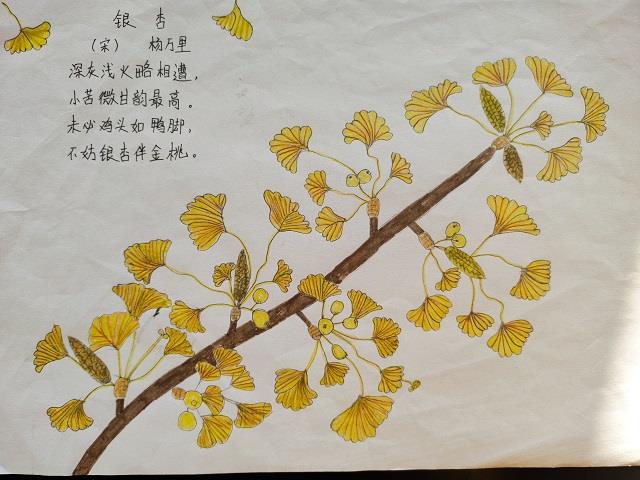 银杏
(宋) 杨万里
深灰浅火略相遭,
小苦微甘韵最高。
未必鸡头如鸭脚,
不妨银杏伴金桃。